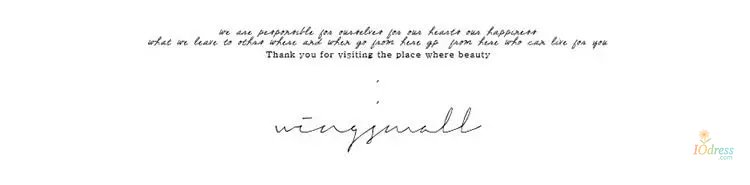 we are pesponsible for ourselves for our hearts our happiness
what we leave to othrs where and when go from here gp from here who can live for you
Thank you for visiting the place where beauty
wingsmall
10dress
.com